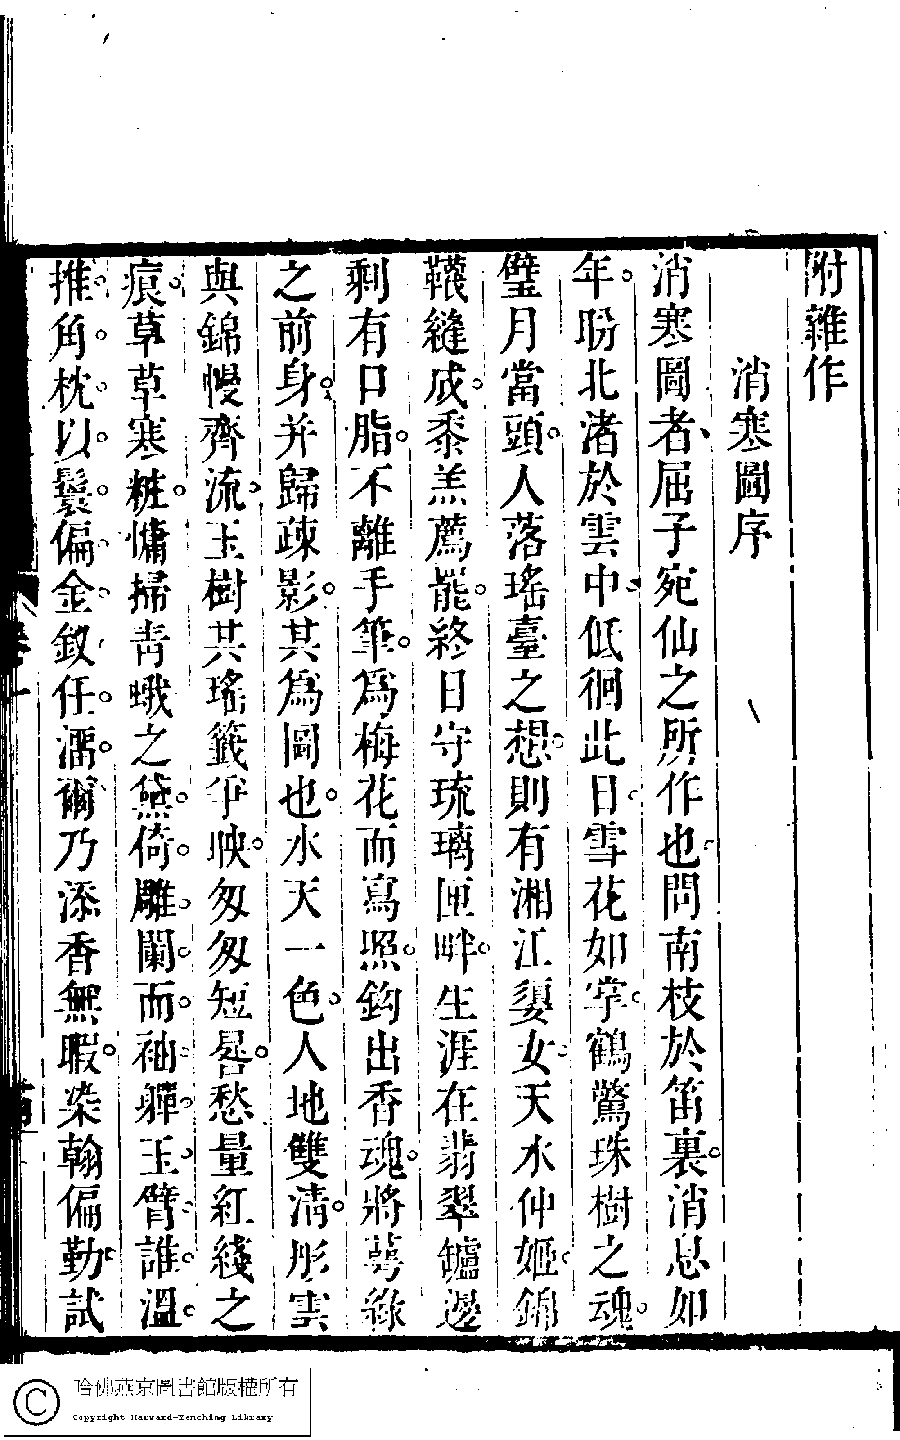 附雜作
消寒圖序
消寒圖者、屈子宛仙之所作也。問南枝於笛裏。消息如
年。盼北渚於雲中、低徊此日。雪花如掌。鶴驚珠樹之魂。
璧月當頭。人落瑤臺之想。則有湘江娣女。天水仲姬。錦
韈縫成。黍羔薦罷。終日守琉璃匣畔。生涯在翡翠鑪邊
剩有口脂。不離手筆。爲梅花而寫照。鈎出香魂。將萼綠
之前身。并歸疎影。其爲圖也。水天一色。人地雙淸。彤雲
與錦幔齊流。玉樹共瑤籤爭映。匆匆短晷。愁量紅綫之
痕。草草寒粧。慵掃靑蛾之黛。倚雕闌而袖嚲玉臂誰溫。
推角枕以鬟偏金釵任溜。爾乃添香無暇。染翰偏勤。試
卷一
哈佛燕京圖書館版權所有
Copyright Harvard-Yenching Library